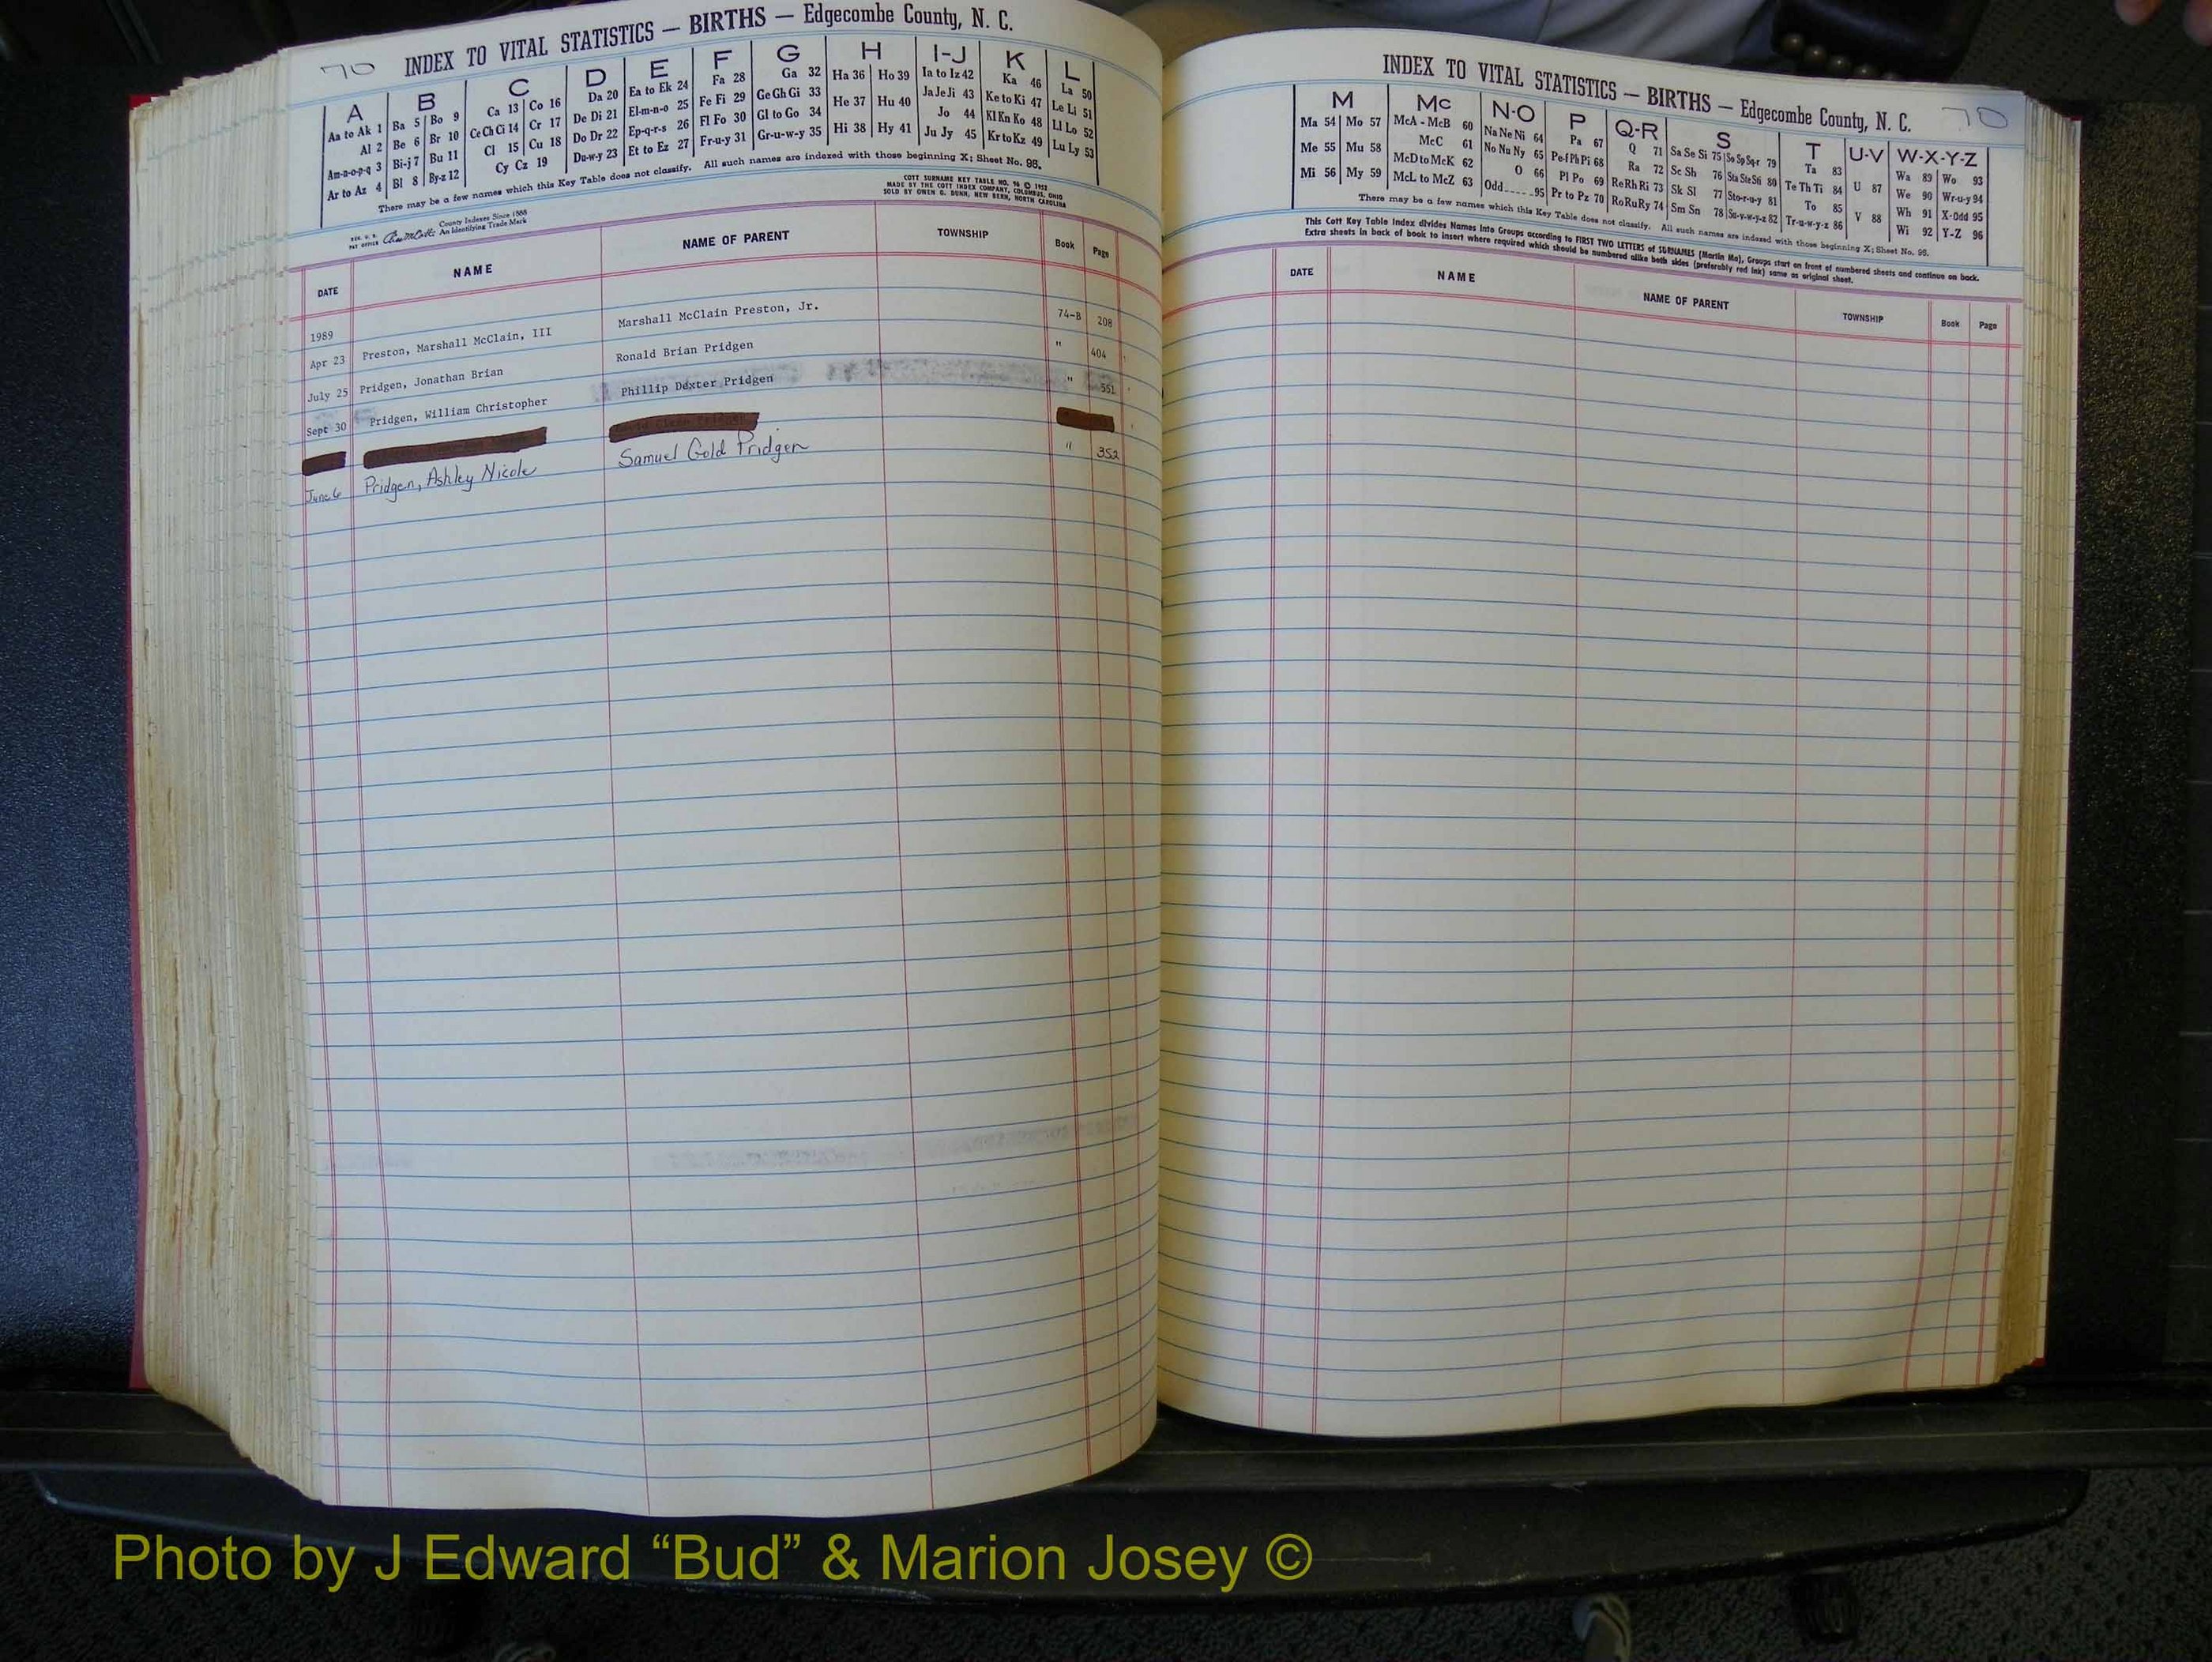 70 INDEX TO VITAL STATISTICS — BIRTHS — Edgecombe County, N. C.
A B C D E F G H I-J K L
Aa to Ak 1 Ba 5 Bo 9 Ca 13 Co 16 Da 20 Ea to Ek 24 Fa 28 Ga 32 Ha 36 Ho 39 Ia to Iz 42 Ka 46 La 50
Al 2 Be 6 Br 10 Ce Ch Ci 14 Cr 17 De Di 21 El-m-n-o 25 Fe Fi 29 Ge Gh Gi 33 He 37 Hu 40 Ja Je Ji 43 Ke to Ki 47 Le Li 51
Am-n-o-p-q 3 Bi-j 7 Bu 11 Cl 15 Cu 18 Do Dr 22 Ep-q-r-s 26 Fl Fo 30 Gl to Go 34 Hi 38 Hy 41 Jo 44 Kl Kn Ko 48 Ll Lo 52
Ar to Az 4 Bl 8 By-z 12 Cy Cz 19 Du-w-y 23 Et to Ez 27 Fr-u-y 31 Gr-u-w-y 35 Ju Jy 45 Kr to Kz 49 Lu Ly 53
There may be a few names which this Key Table does not classify. All such names are indexed with those beginning X; Sheet No. 98.
REG. U. S. PAT OFFICE County Indexes Since 1888 An Identifying Trade Mark
COTT SURNAME KEY TABLE NO. 96 © 1952
MADE BY THE COTT INDEX COMPANY, COLUMBUS, OHIO
SOLD BY OWEN G. DUNN, NEW BERN, NORTH CAROLINA
DATE NAME NAME OF PARENT TOWNSHIP Book Page
1989
Apr 23 Preston, Marshall McClain, III Marshall McClain Preston, Jr. 74-B 208
July 25 Pridgen, Jonathan Brian Ronald Brian Pridgen " 404
Sept 30 Pridgen, William Christopher Phillip Dexter Pridgen " 551
June 6 Pridgen, Ashley Nicole Samuel Gold Pridgen " 352
INDEX TO VITAL STATISTICS — BIRTHS — Edgecombe County, N. C. 70
M Mc N-O P Q-R S T U-V W-X-Y-Z
Ma 54 Mo 57 McA - McB 60 Na Ne Ni 64 Pa 67 Q 71 Sa Se Si 75 So Sp Sq-r 79 Ta 83 U 87 Wa 89 Wo 93
Me 55 Mu 58 McC 61 No Nu Ny 65 Pe-f Ph Pi 68 Ra 72 Sc Sh 76 Sta Ste Sti 80 Te Th Ti 84 V 88 We 90 Wr-u-y 94
Mi 56 My 59 McD to McK 62 O 66 Pl Po 69 Re Rh Ri 73 Sk Sl 77 Sto-r-u-y 81 To 85 Wh 91 X-Odd 95
McL to McZ 63 Odd 95 Pr to Pz 70 Ro Ru Ry 74 Sm Sn 78 Su-v-w-y-z 82 Tr-u-w-y-z 86 Wi 92 Y-Z 96
There may be a few names which this Key Table does not classify. All such names are indexed with those beginning X; Sheet No. 95.
This Cott Key Table Index divides Names into Groups according to FIRST TWO LETTERS of SURNAMES (Martin Ma), Groups start on front of numbered sheets and continue on back.
Extra sheets in back of book to insert where required which should be numbered alike both sides (preferably red ink) same as original sheet.
DATE NAME NAME OF PARENT TOWNSHIP Book Page
Photo by J Edward “Bud” & Marion Josey ©